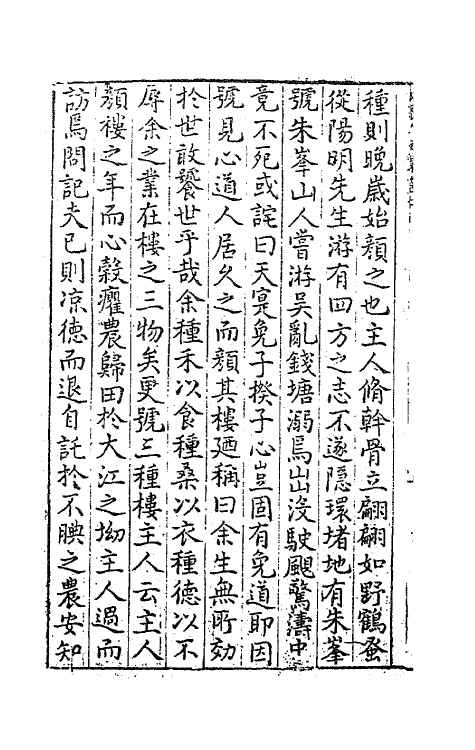 種則晚歲始顏之也主人脩幹骨立翩翩如野鶴蚤
從陽明先生游有四方之志不遂隱環堵地有朱峯
號朱峯山人嘗游吳亂錢塘溺焉出沒駛颶驚濤中
竟不死或詫曰天寔免子揆子心豈固有免道耶因
號見心道人居久之而顏其樓廼稱曰余生無所効
於世敢饕世乎哉余種禾以食種桑以衣種德以不
辱余之業在樓之三物矣更號三種樓主人云主人
顏樓之年而心穀癯農歸田於大江之坳主人過而
訪焉問記夫已則凉德而退自託於不腆之農安知